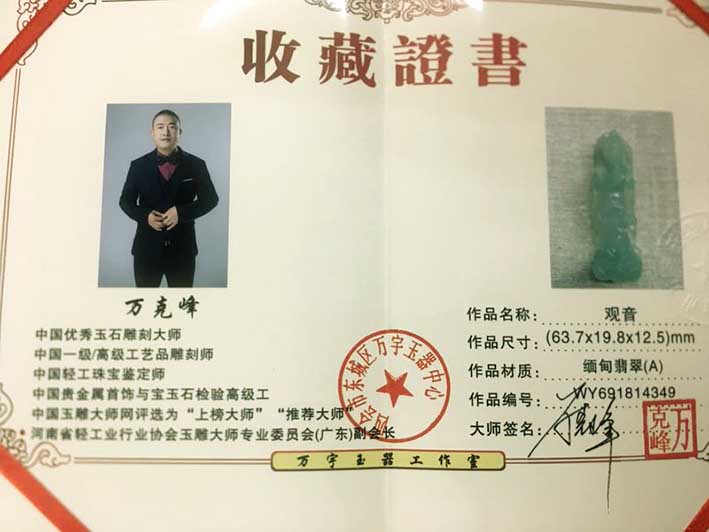 收藏證書
万克峰
中国优秀玉石雕刻大师
中国一级/高级工艺品雕刻师
中国轻工珠宝鉴定师
中国贵金属首饰与宝玉石检验高级工
中国玉雕大师网评选为“上榜大师”“推荐大师”
河南省轻工业行业协会玉雕大师专业委员会(广东)副会长
作品名称: 观音
作品尺寸: (63.7x19.8x12.5)mm
作品材质: 缅甸翡翠(A)
作品编号: WY691814349
大师签名:
万克峰
市东城区万宇玉器中心
万宇玉器工作室